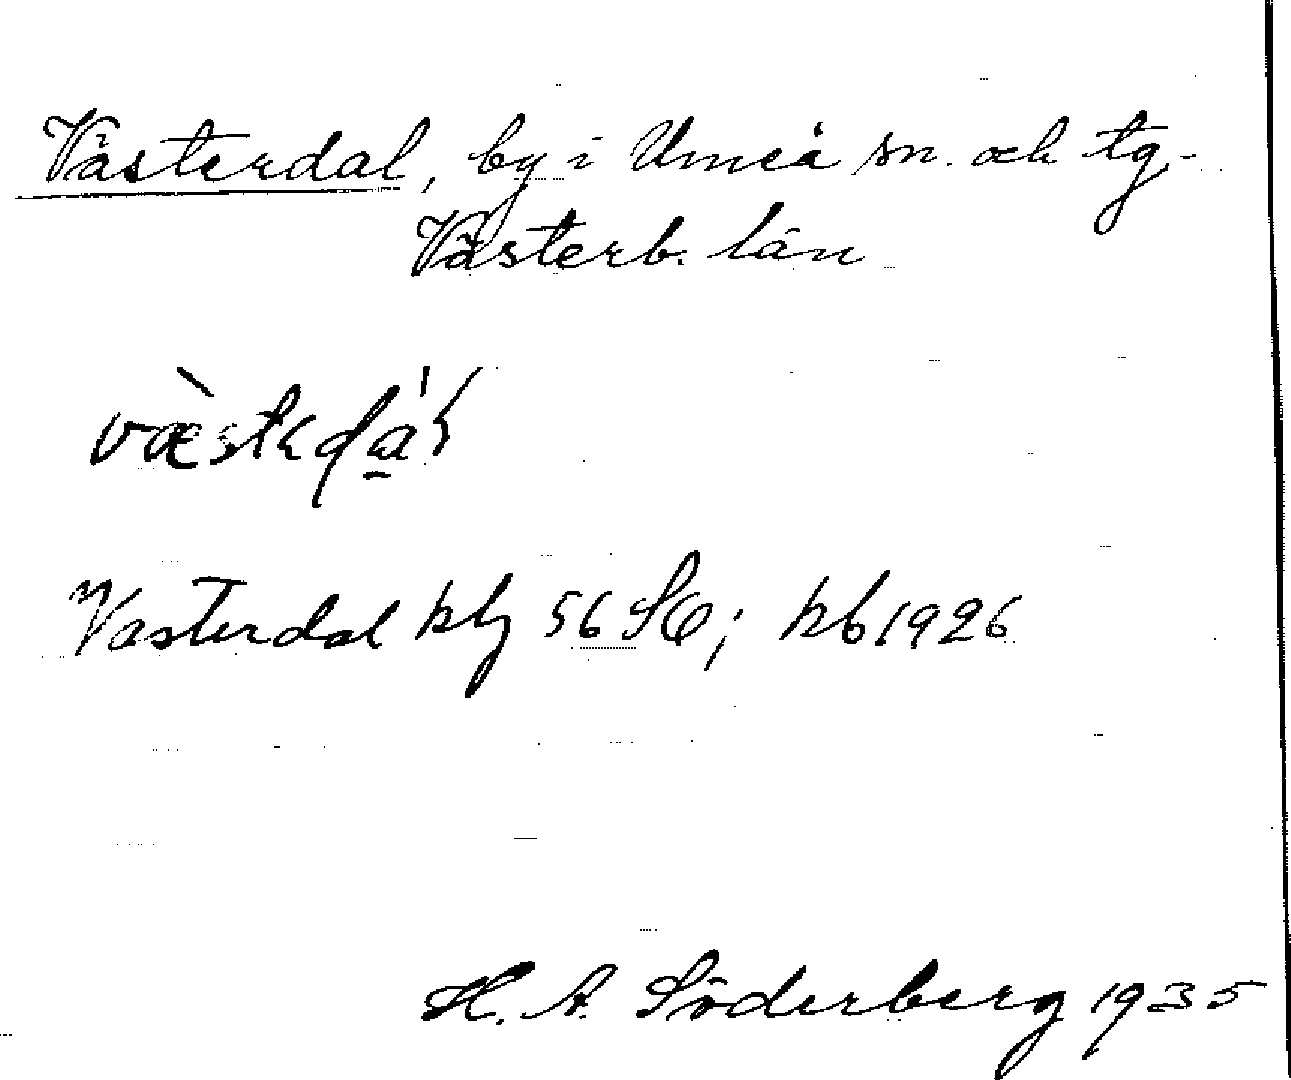 Västerdal, by i Umeå sn. och tg.
Västerb. län
Västerdal kbg 56 SÖ; kb 1926
H. A. Söderberg 1935